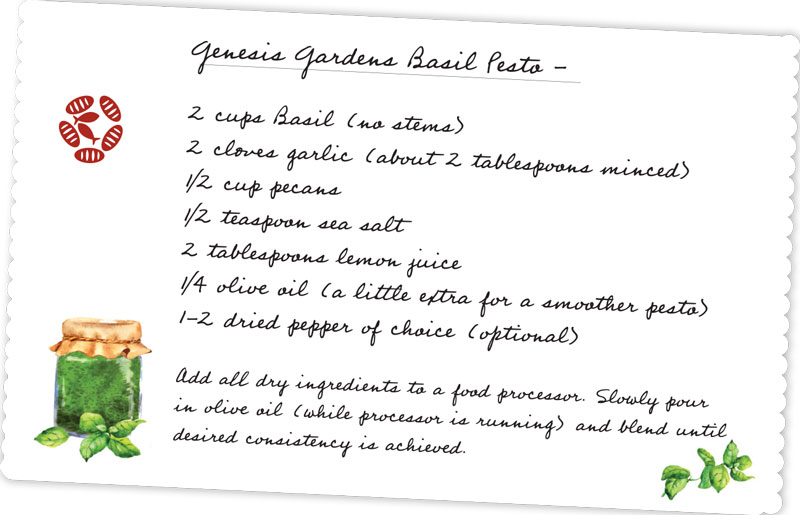 Genesis Gardens Basil Pesto –
2 cups Basil (no stems)
2 cloves garlic (about 2 tablespoons minced)
1/2 cup pecans
1/2 teaspoon sea salt
2 tablespoons lemon juice
1/4 olive oil (a little extra for a smoother pesto)
1-2 dried pepper of choice (optional)
Add all dry ingredients to a food processor. Slowly pour
in olive oil (while processor is running) and blend until
desired consistency is achieved.